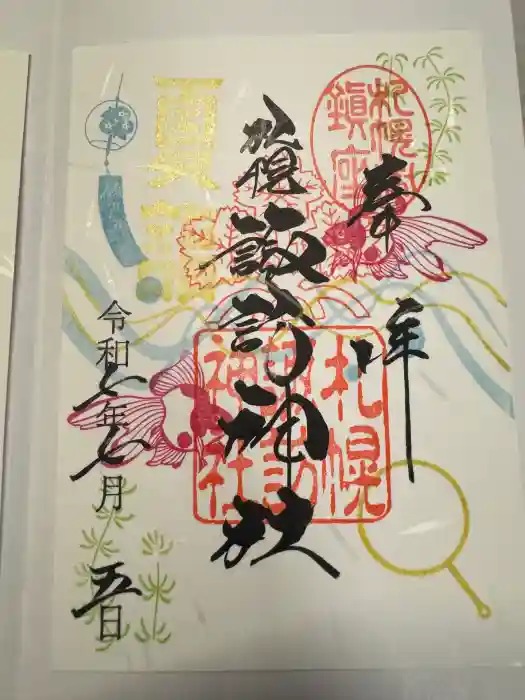 奉拝
札幌
鎮座
札幌諏訪神社
札幌
諏訪
神社
夏詣
令和六年七月五日